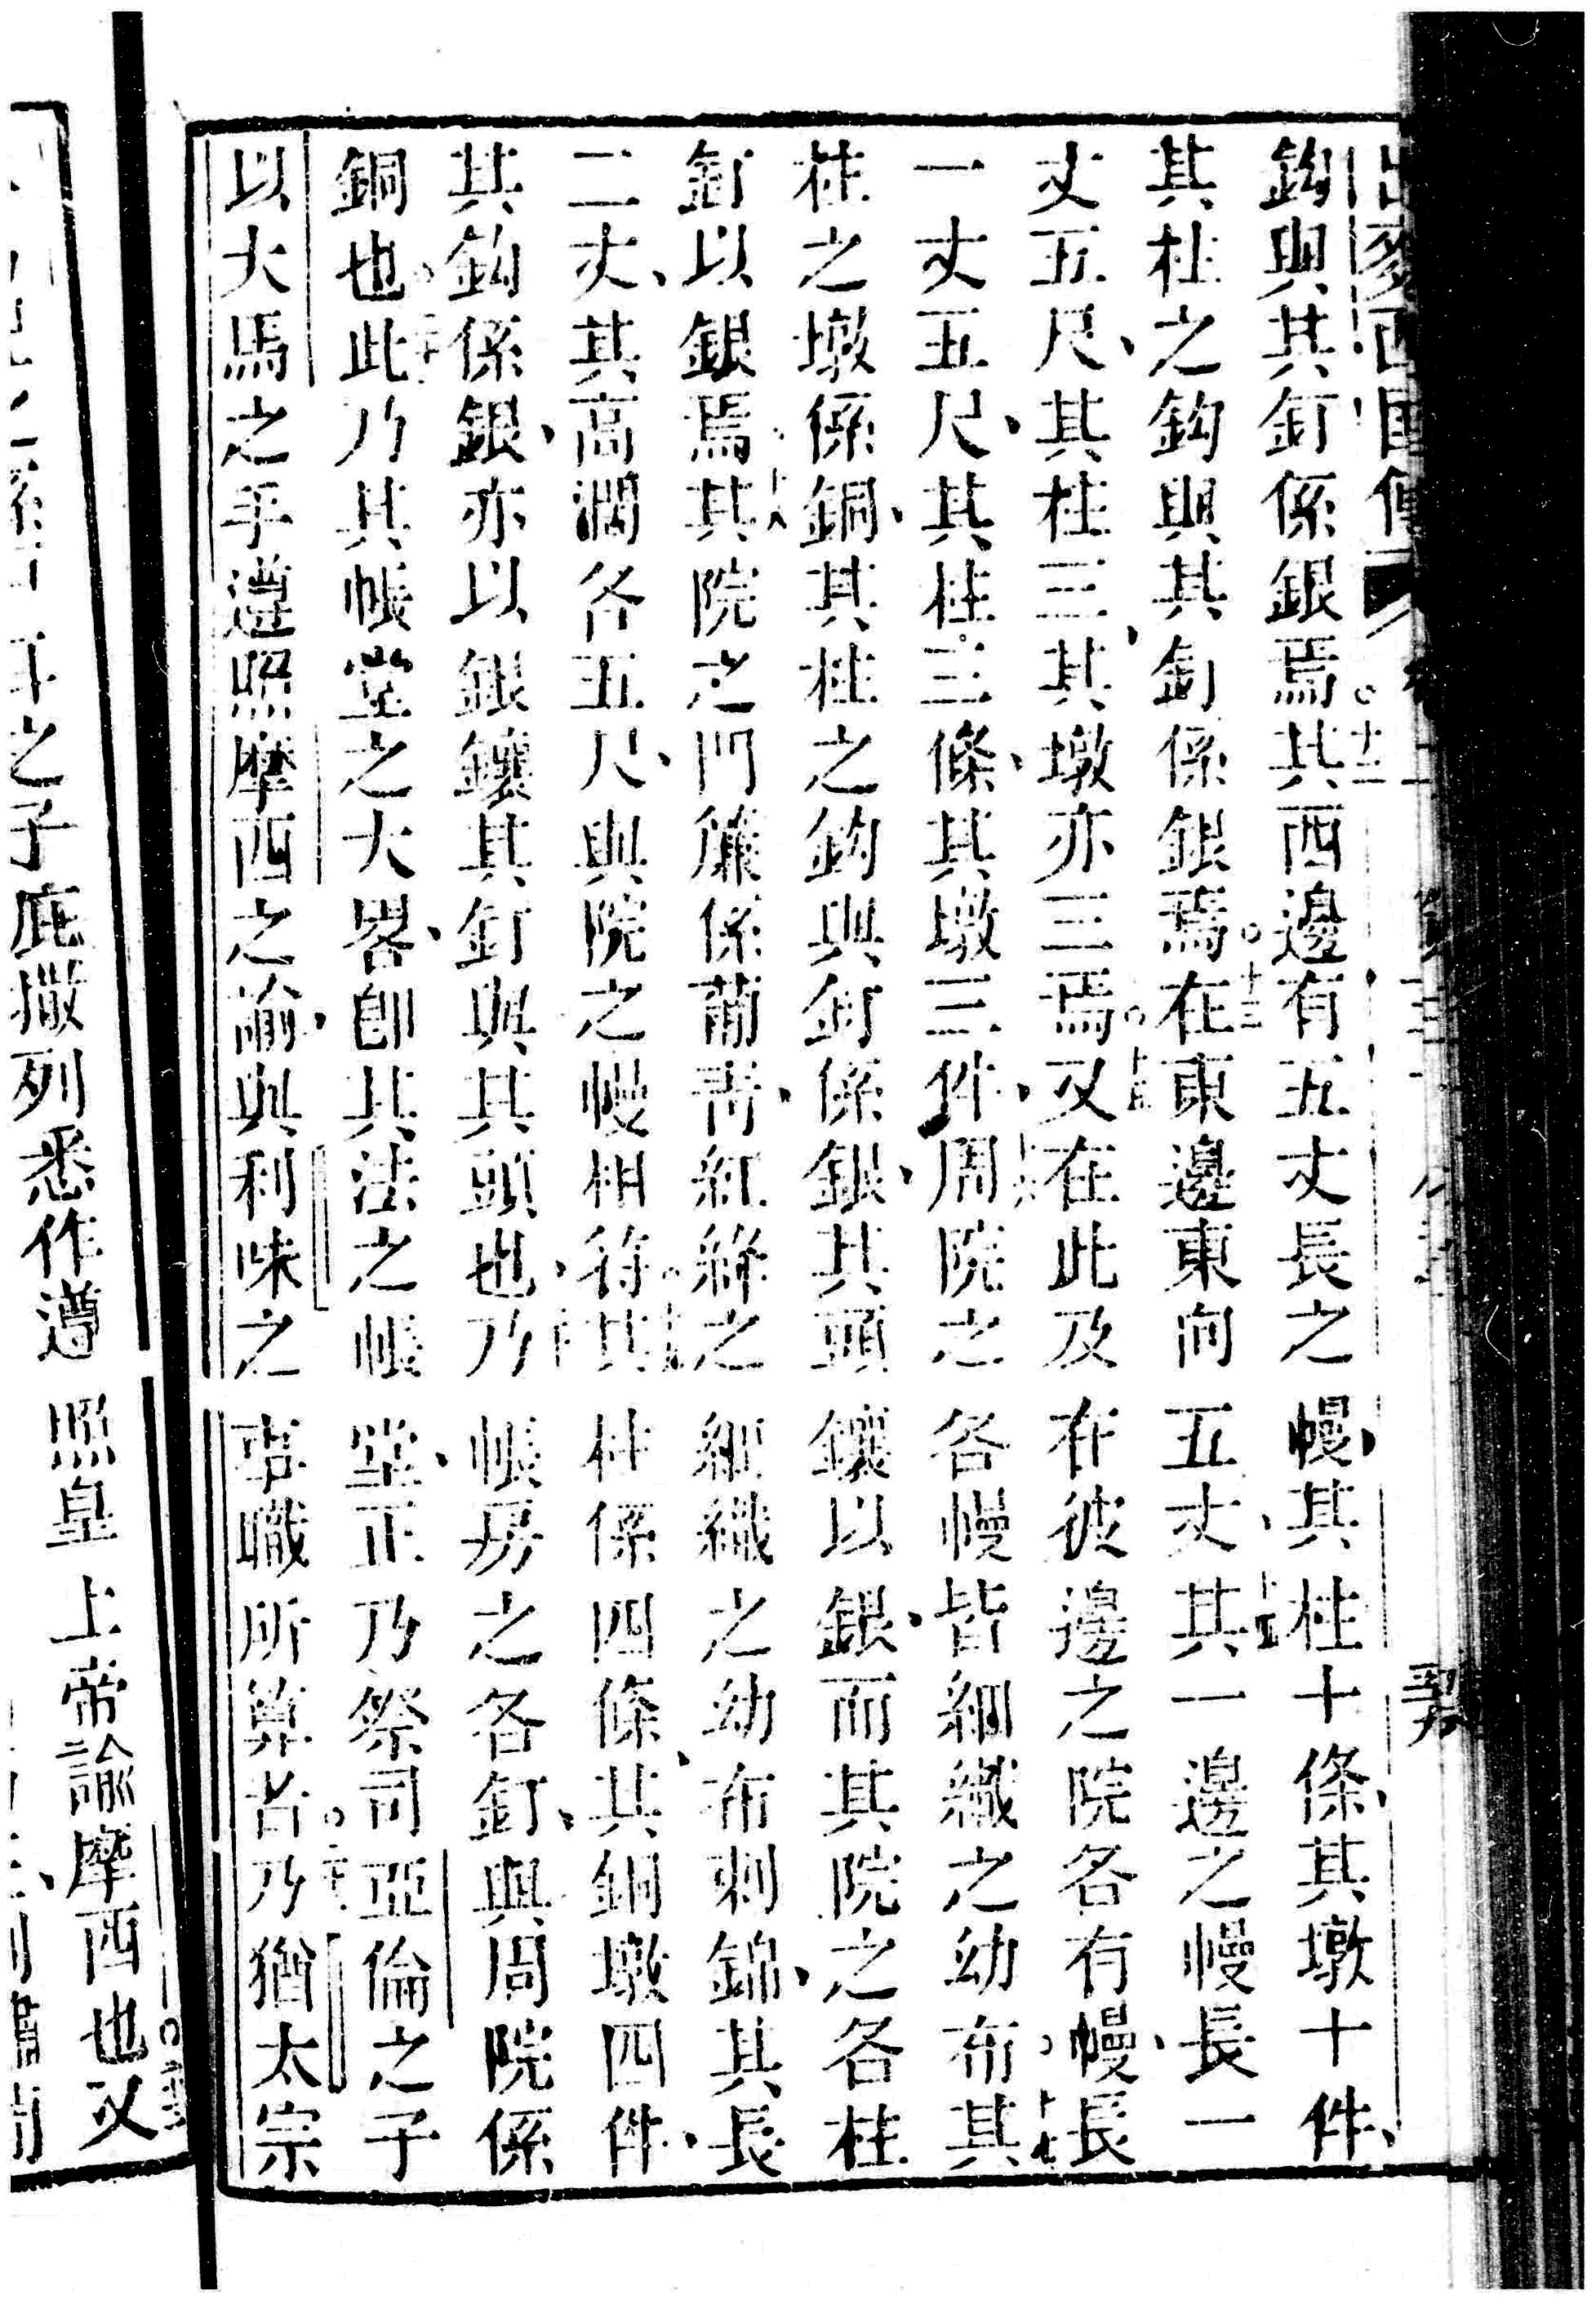 鈎與其釘係銀焉。十二其西邊有五丈長之幔、其柱十條、其墩十件、
其柱之鈎與其釘係銀焉。十三在東邊東向五丈、十四其一邊之幔長一
丈五尺、其柱三、其墩亦三焉。十五又在此及在彼邊之院各有幔、長
一丈五尺、其柱三條、其墩三件、十六周院之各幔皆細纖之幼布、十七其
柱之墩係銅、其柱之鈎與釘係銀、其頭鑲以銀、而其院之各柱
釘以銀焉、十八其院之門簾係葡青、紅絳之細纖之幼布刺錦、其長
二丈、其高濶各五尺、與院之幔相符。十九其柱係四條、其銅墩四件、
其鈎係銀、亦以銀鑲其釘與其頭也、二十乃帳房之各釘、與周院係
銅也、二十一此乃其帳堂之大畧、卽其法之帳堂、正乃祭司亞倫之子
以大馬之手遵照摩西之諭、與利味之事職所算者。二十二乃猶太宗
之子庇撒列悉作遵照皇上帝諭摩西也又